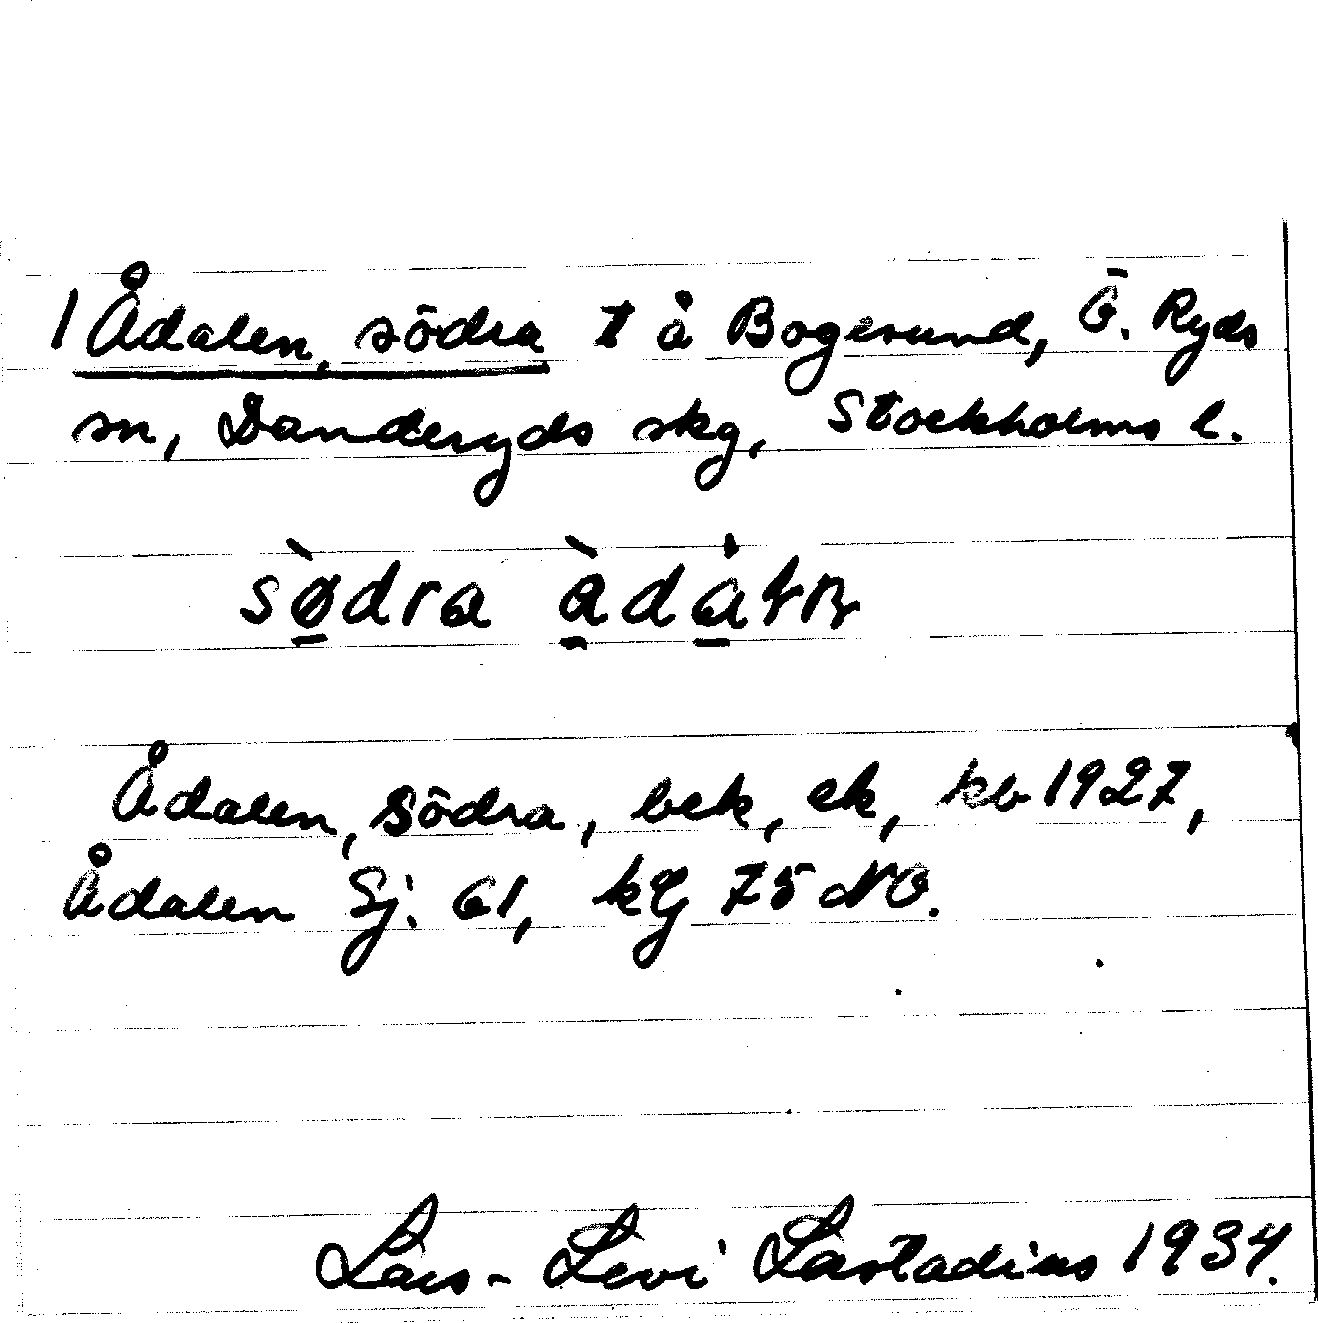 1 Ådalen, södra t å Bogesund, Ö. Ryds
sn, Danderyds skg, Stockholms l.
södra
Ådalen, Södra, bek, ek, kb 1927,
Ådalen Sj. 61, kG 75 NO.
Lars-Levi Læstadius 1934.